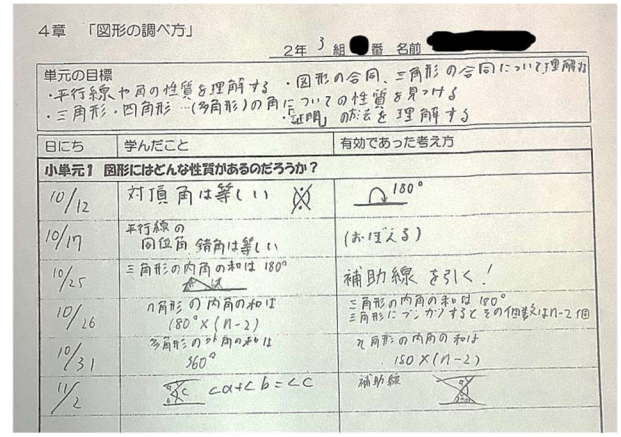 4章 「図形の調べ方」
2年 3 組 番 名前
単元の目標
・平行線や角の性質を理解する ・図形の合同、三角形の合同について理解する
・三角形・四角形…(多角形)の角についての性質を見つける
・「証明」の方法を理解する
日にち 学んだこと 有効であった考え方
小単元1 図形にはどんな性質があるのだろうか?
10/12 対頂角は等しい 180°
10/17 平行線の
同位角 錯角は等しい (おぼえる)
10/25 三角形の内角の和は 180° 補助線を引く!
10/26 n角形の内角の和は 三角形の内角の和は 180°
180°×(n-2) 三角形にブンカツするとその個数はn-2個
10/31 多角形の外角の和は n角形の内角の和は
360° 180×(n-2)
11/2 c <a+<b=<c 補助線